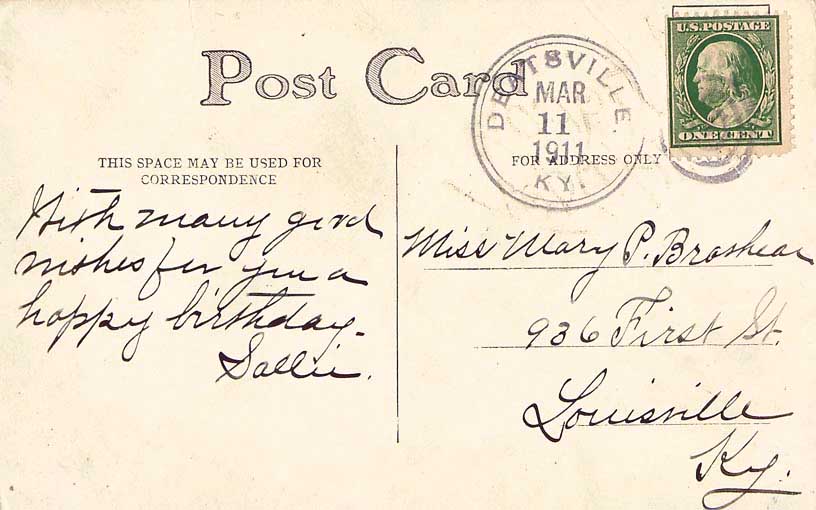 Post Card
DENTSVILLE
MAR
11
1911
KY.
U.S. POSTAGE
ONE CENT
THIS SPACE MAY BE USED FOR
CORRESPONDENCE
FOR ADDRESS ONLY
With many good
wishes for you a
happy birthday-
Sallie.
Miss Mary P. Brashear
936 First St.
Louisville
Ky.